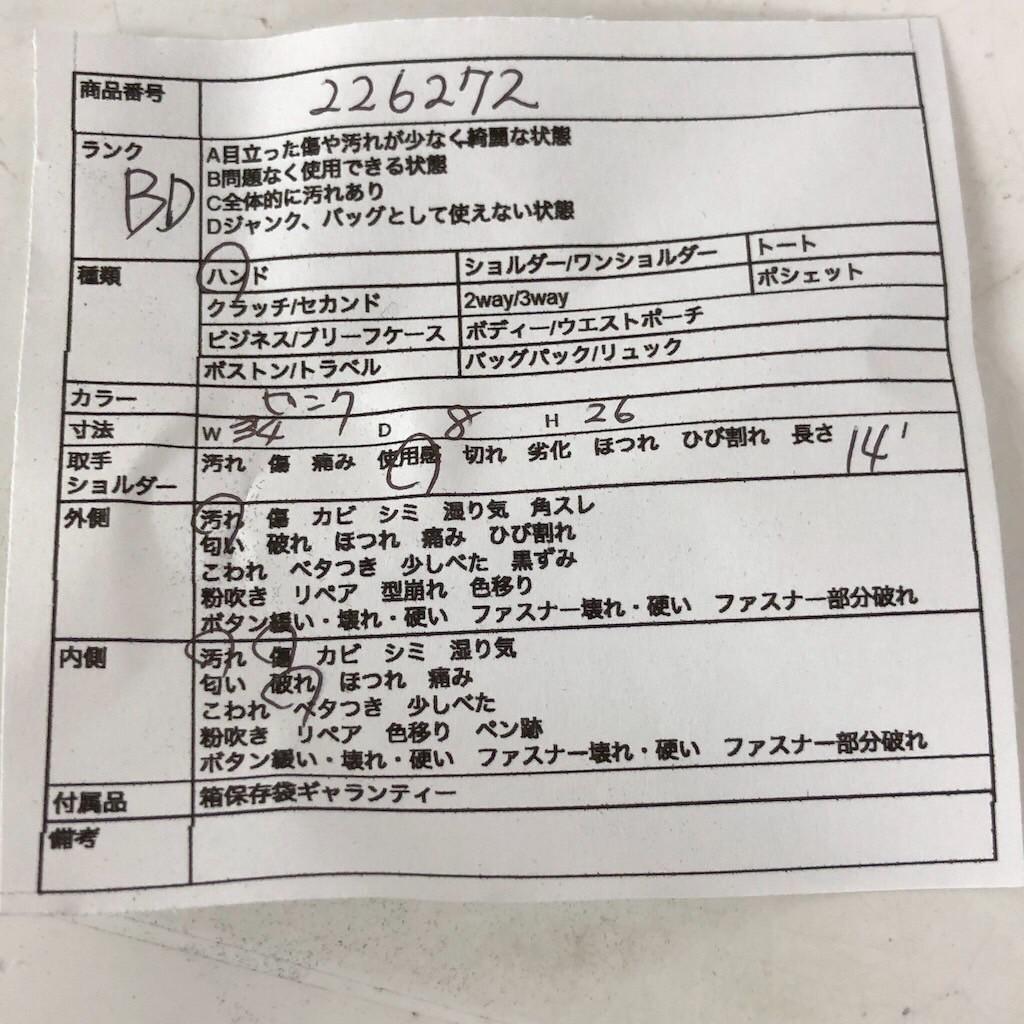 商品番号 226272
ランク BD
A目立った傷や汚れが少なく綺麗な状態
B問題なく使用できる状態
C全体的に汚れあり
Dジャンク、バッグとして使えない状態
種類 ハンド ショルダー/ワンショルダー トート
クラッチ/セカンド 2way/3way ポシェット
ビジネス/ブリーフケース ボディー/ウエストポーチ
ボストン/トラベル バッグパック/リュック
カラー ピンク
寸法 W 34 D 8 H 26
取手 汚れ 傷 痛み 使用感 切れ 劣化 ほつれ ひび割れ 長さ 14
ショルダー
外側 汚れ 傷 カビ シミ 湿り気 角スレ
匂い 破れ ほつれ 痛み ひび割れ
こわれ ベタつき 少しべた 黒ずみ
粉吹き リペア 型崩れ 色移り
ボタン緩い・壊れ・硬い ファスナー壊れ・硬い ファスナー部分破れ
内側 汚れ 傷 カビ シミ 湿り気
匂い 破れ ほつれ 痛み
こわれ ベタつき 少しべた
粉吹き リペア 色移り ペン跡
ボタン緩い・壊れ・硬い ファスナー壊れ・硬い ファスナー部分破れ
付属品 箱保存袋ギャランティー
備考